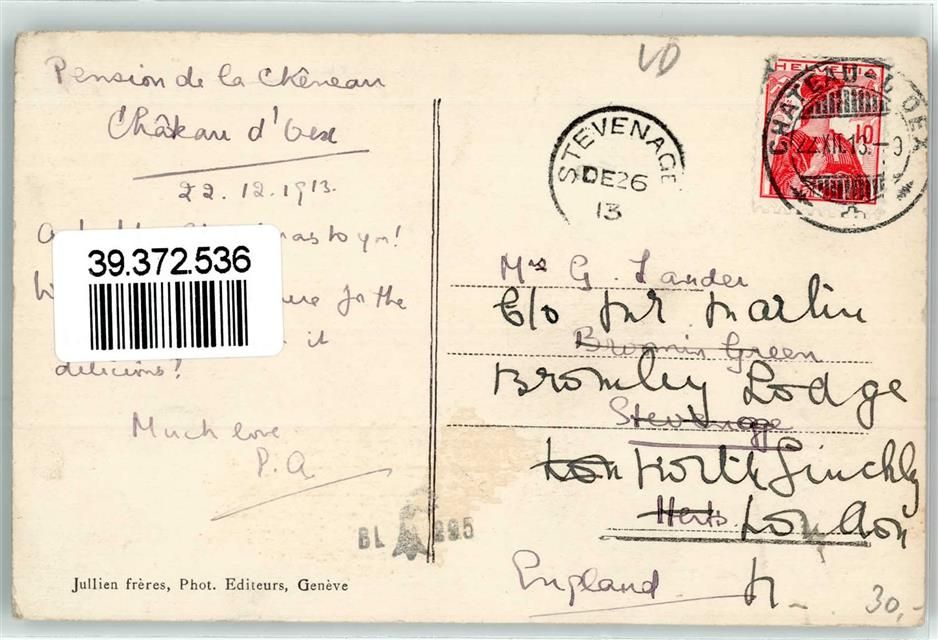 Pension de la Chêneau
Château d'Oex
22.12.1913.
to you!
for the
it
delicious!
Much love
P.A.
BL 295
Jullien frères, Phot. Editeurs, Genève
39.372.536
VD
STEVENAGE
DE 26
13
HELVETIA
10
CHATEAU-D'OEX
22.XII.13.-9
Mrs G. Lander
C/o Mr Martin
Green
Bromley Lodge
Stevenage
Lon North Finchley
Herts London
England N
30,-